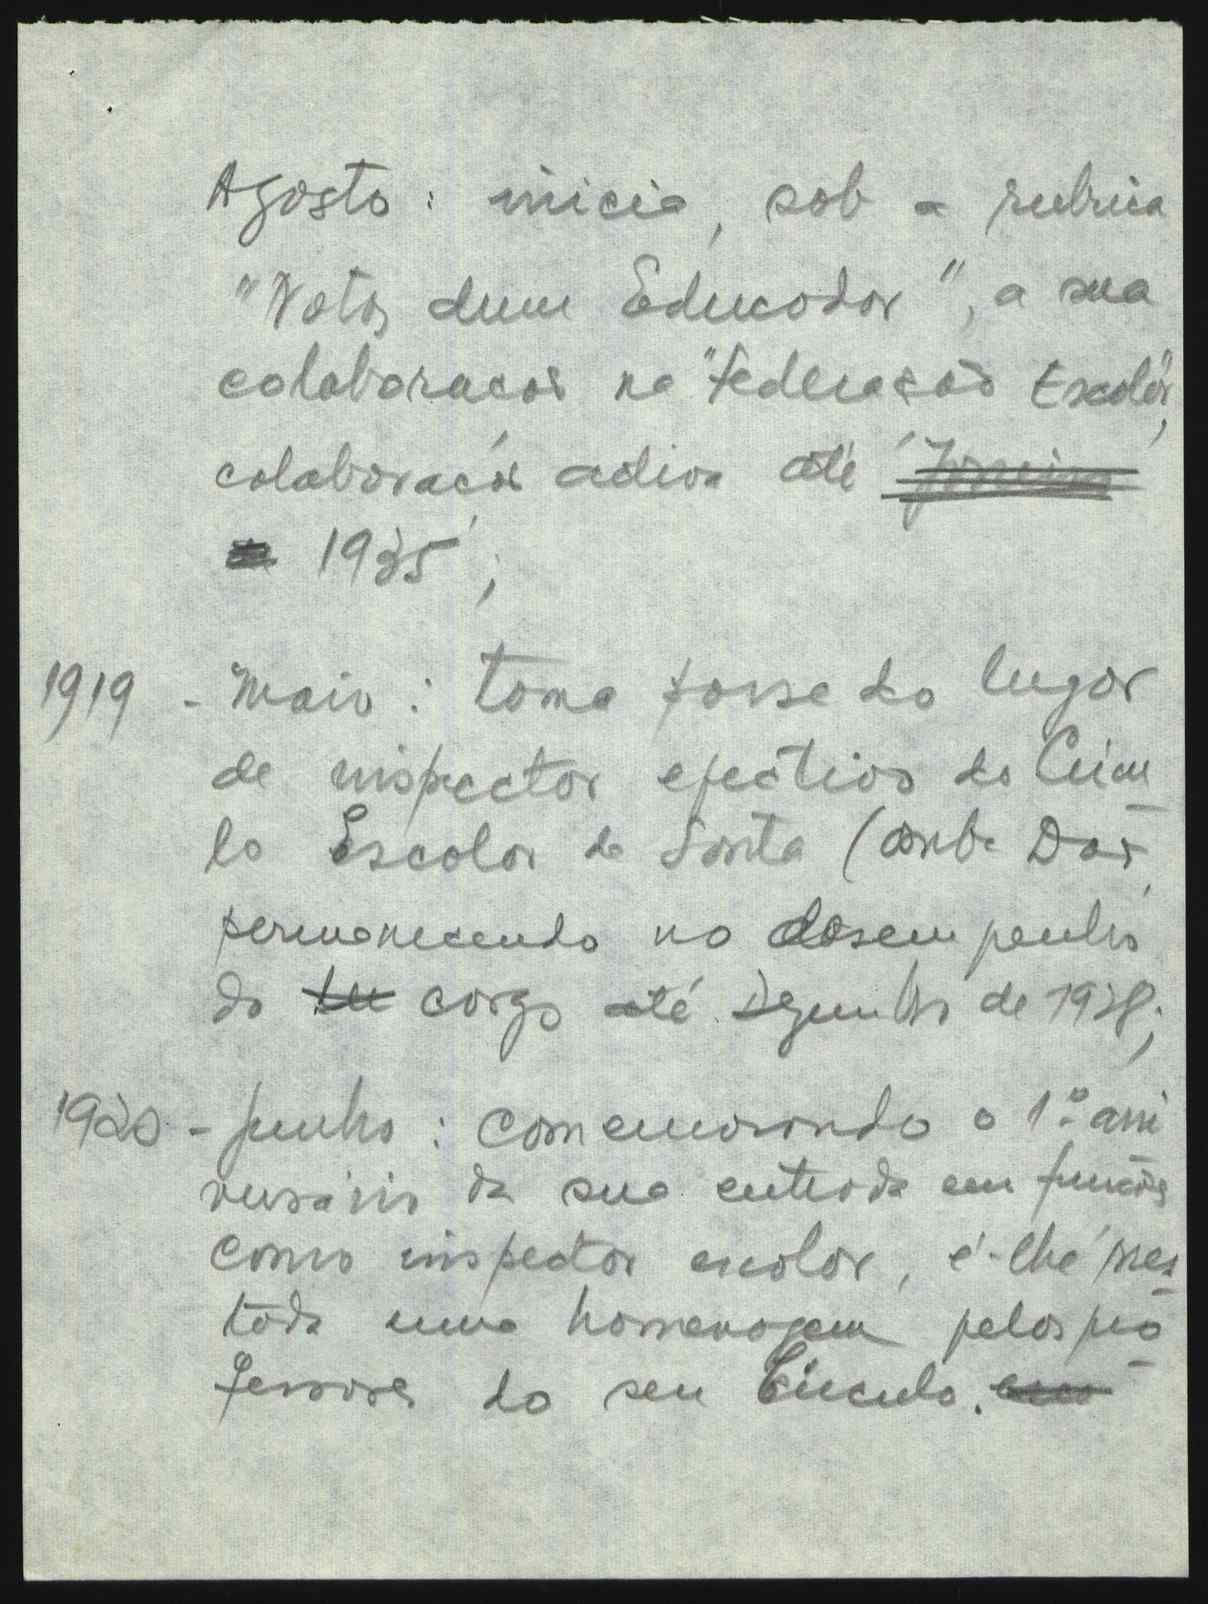 Agosto: inicia, sob a rubrica
"Notas dum Educador", a sua
colaboração na "Federação Escolar",
colaboração activa até
1935;
1919 - Maio: toma posse do lugar
de inspector efectivo do Círcu-
lo Escolar de Santa Comba Dão,
permanecendo no desempenho
do cargo até Dezembro de 1928;
1920 - Junho: comemorando o 1.º ani
versário da sua entrada em funções
como inspector escolar, é-lhe pres-
tada uma homenagem pelos pro-
fessores do seu Círculo.